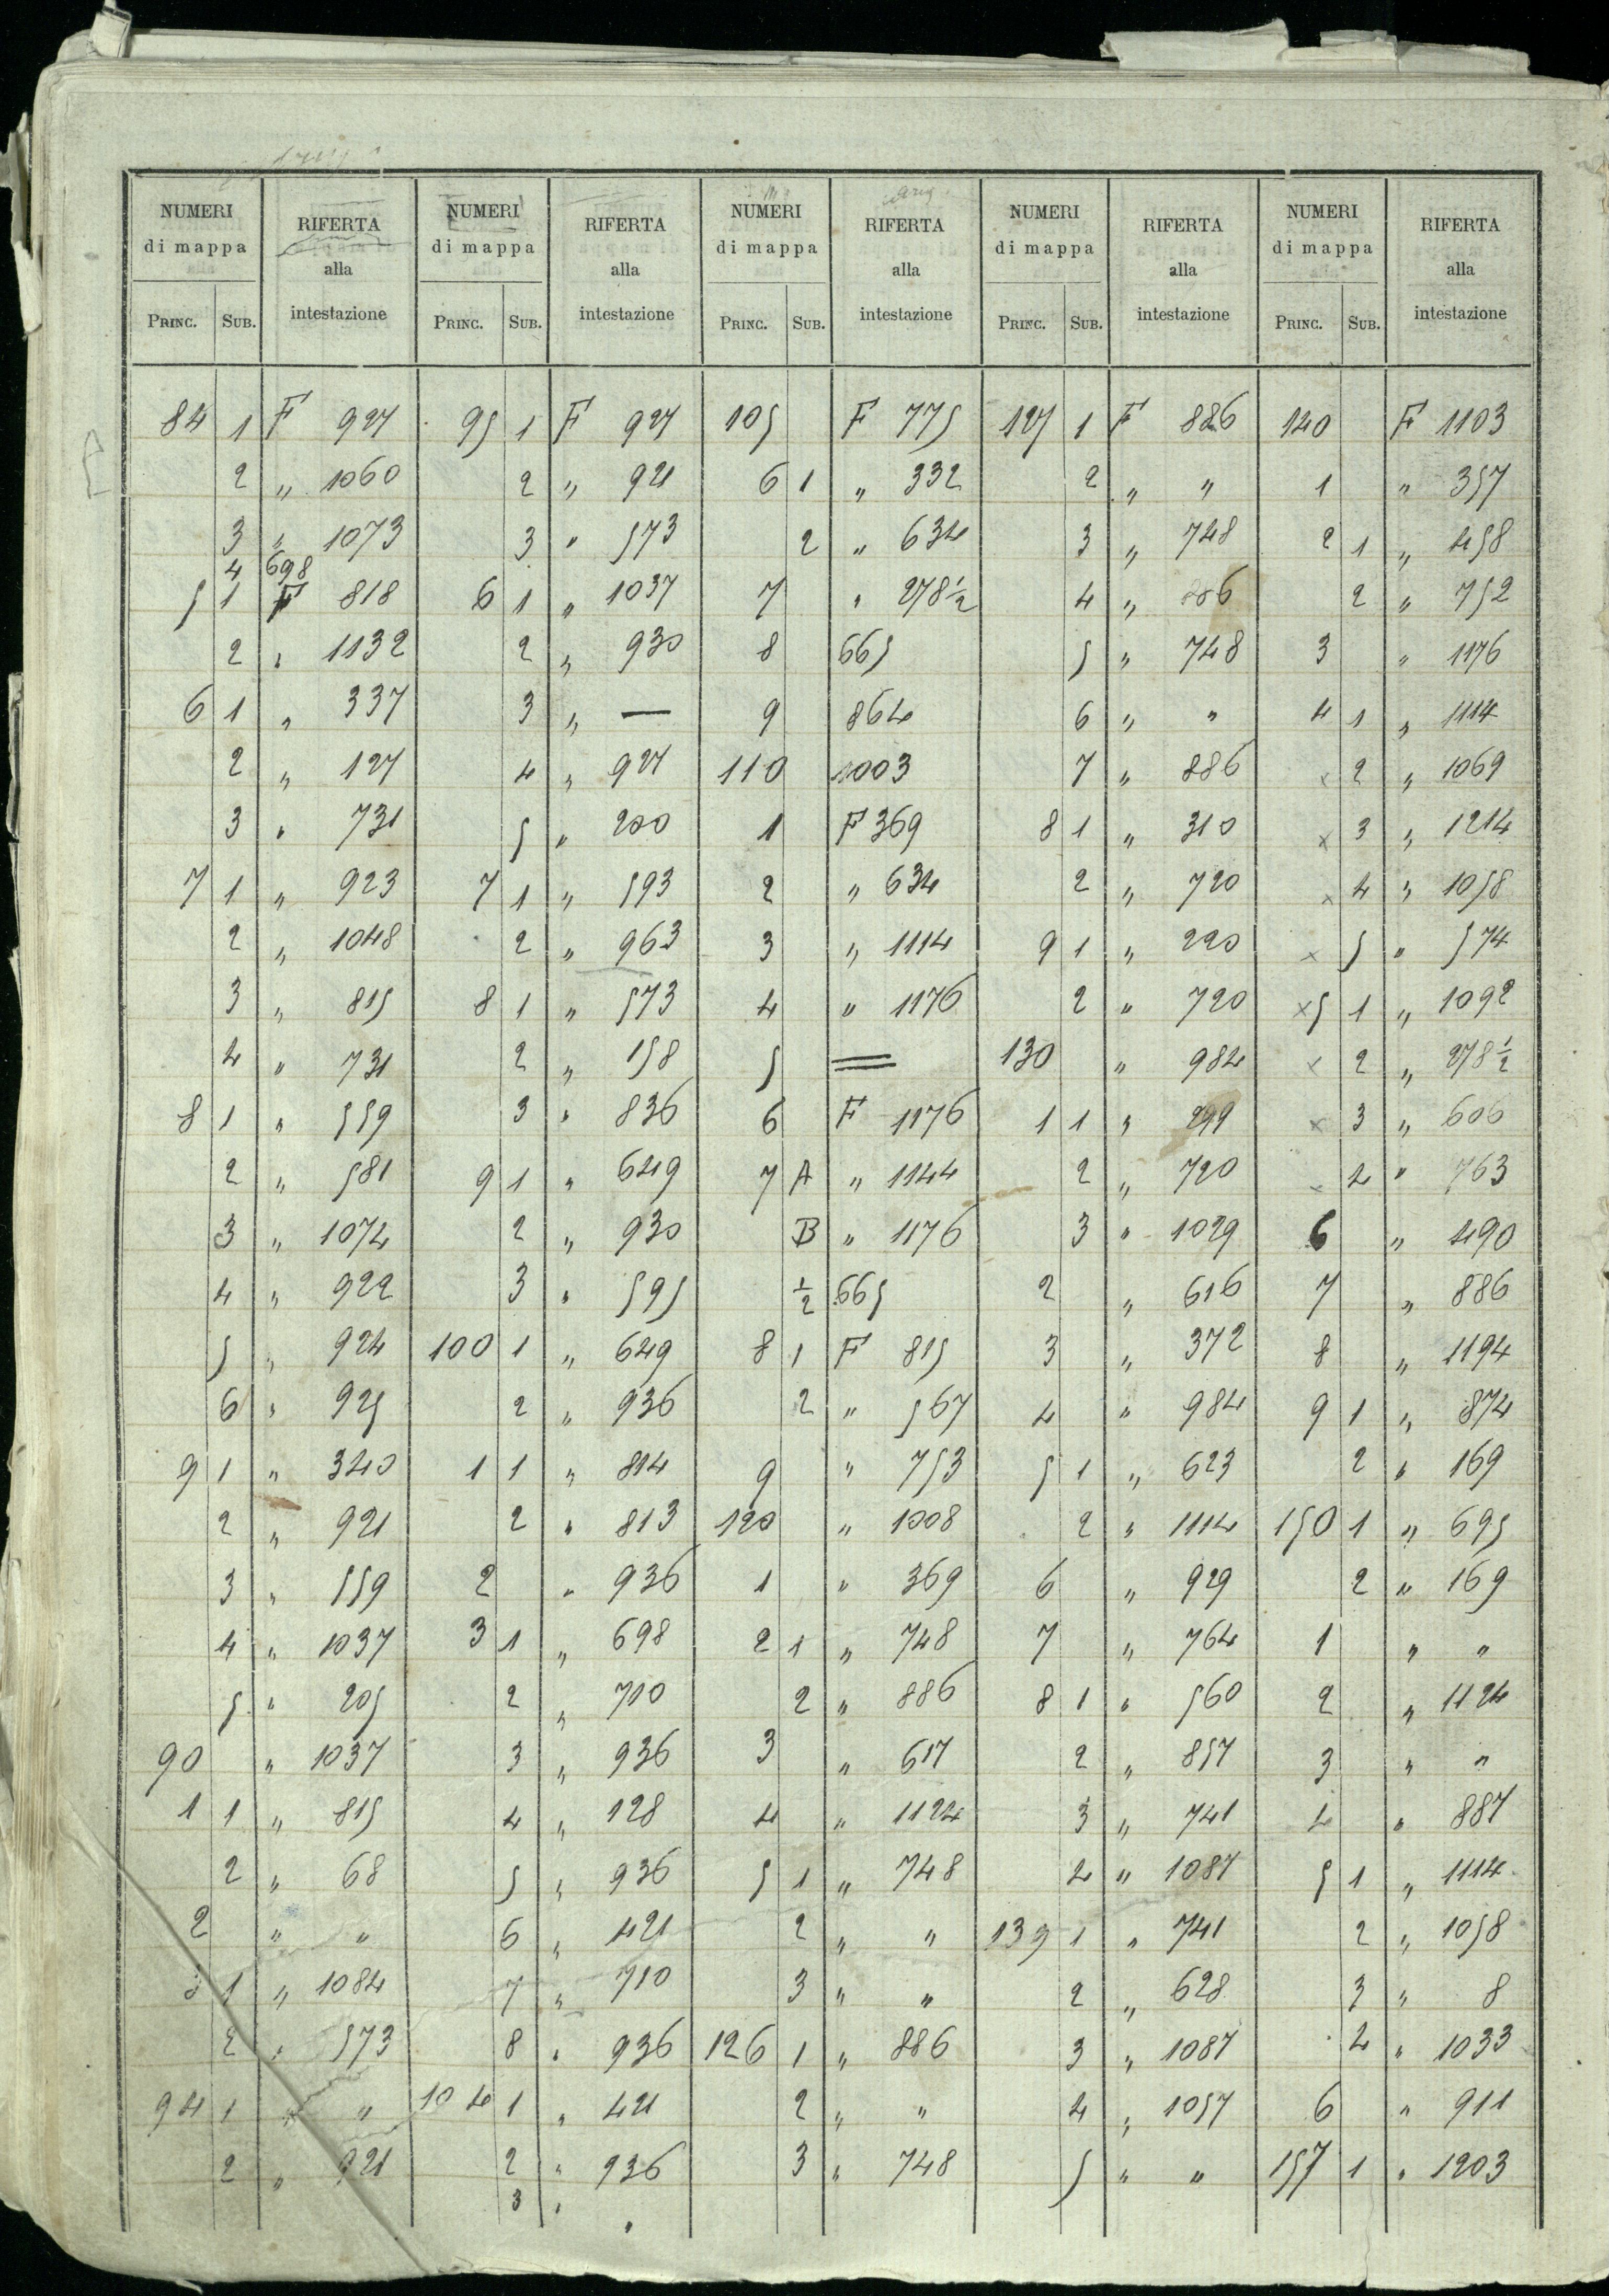 NUMERI di mappa RIFERTA alla intestazione NUMERI di mappa RIFERTA alla intestazione NUMERI di mappa RIFERTA alla intestazione NUMERI di mappa RIFERTA alla intestazione NUMERI di mappa RIFERTA alla intestazione
PRINC. SUB. PRINC. SUB. PRINC. SUB. PRINC. SUB. PRINC. SUB.
84 1 F 927 95 1 F 927 105 F 775 127 1 F 886 140 F 1103
2 " 1060 2 " 921 6 1 " 332 2 " " 1 " 357
3 " 1073 3 " 573 2 " 634 3 " 748 2 1 " 458
4 698
5 1 F 818 6 1 " 1037 7 " 278½ 4 " 886 2 " 752
2 " 1132 2 " 930 8 665 5 " 748 3 " 1176
6 1 " 337 3 " — 9 864 6 " " 4 1 " 1114
2 " 127 4 " 927 110 1003 7 " 886 x 2 " 1069
3 " 731 5 " 200 1 F 369 8 1 " 310 x 3 " 1214
7 1 " 923 7 1 " 593 2 " 634 2 " 720 x 4 " 1058
2 " 1048 2 " 963 3 " 1114 9 1 " 220 x 5 " 574
3 " 815 8 1 " 573 4 " 1176 2 " 720 x 5 1 " 1092
4 " 731 2 " 158 5 = 130 " 984 x 2 " 278½
8 1 " 559 3 " 836 6 F 1176 1 1 " 299 x 3 " 606
2 " 581 9 1 " 649 7 A " 1144 2 " 720 x 4 " 763
3 " 1074 2 " 930 B " 1176 3 " 1029 6 " 490
4 " 922 3 " 595 ½ 665 2 " 616 7 " 886
5 " 924 100 1 " 649 8 1 F 815 3 " 372 8 " 1194
6 " 925 2 " 936 2 " 567 4 " 984 9 1 " 874
9 1 " 340 1 1 " 814 9 " 753 5 1 " 623 2 " 169
2 " 921 2 " 813 120 " 1008 2 " 1114 150 1 " 695
3 " 559 2 " 936 1 " 369 6 " 929 2 " 169
4 " 1037 3 1 " 698 2 1 " 748 7 " 764 1 " "
5 " 205 2 " 710 2 " 886 8 1 " 560 2 " 1124
90 " 1037 3 " 936 3 " 617 2 " 857 3 " "
1 1 " 815 4 " 128 4 " 1124 3 " 741 4 " 887
2 " 68 5 " 936 5 1 " 748 4 " 1087 5 1 " 1114
2 " " 6 " 421 2 " " 139 1 " 741 2 " 1058
3 1 " 1084 7 " 710 3 " " 2 " 628 3 " 8
2 " 573 8 " 936 126 1 " 886 3 " 1087 4 " 1033
94 1 " " 104 1 " 421 2 " " 4 " 1057 6 " 911
2 " 921 2 " 936 3 " 748 5 " " 157 1 " 1203
3 " "